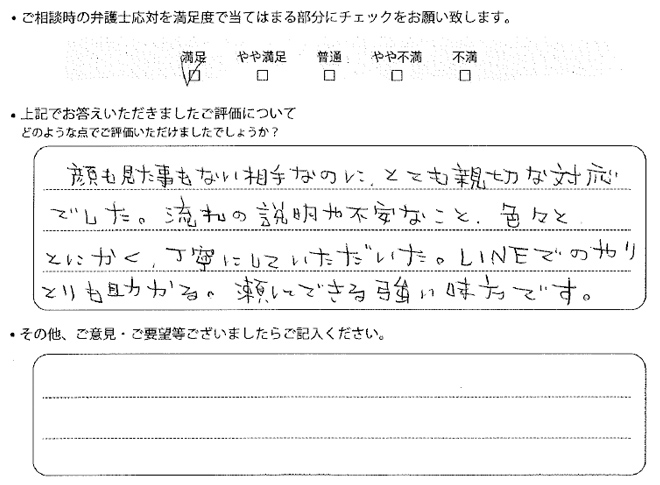 ・ご相談時の弁護士応対を満足度で当てはまる部分にチェックをお願い致します。
満足 やや満足 普通 やや不満 不満
・上記でお答えいただきましたご評価について
どのような点でご評価いただけましたでしょうか？
顔も見た事もない相手なのに、とても親切な対応
でした。流れの説明や不安なこと、色々と
とにかく、丁寧にしていただいた。LINEでのやり
とりも助かる。瀬しできる強い味方です。
・その他、ご意見・ご要望等ございましたらご記入ください。